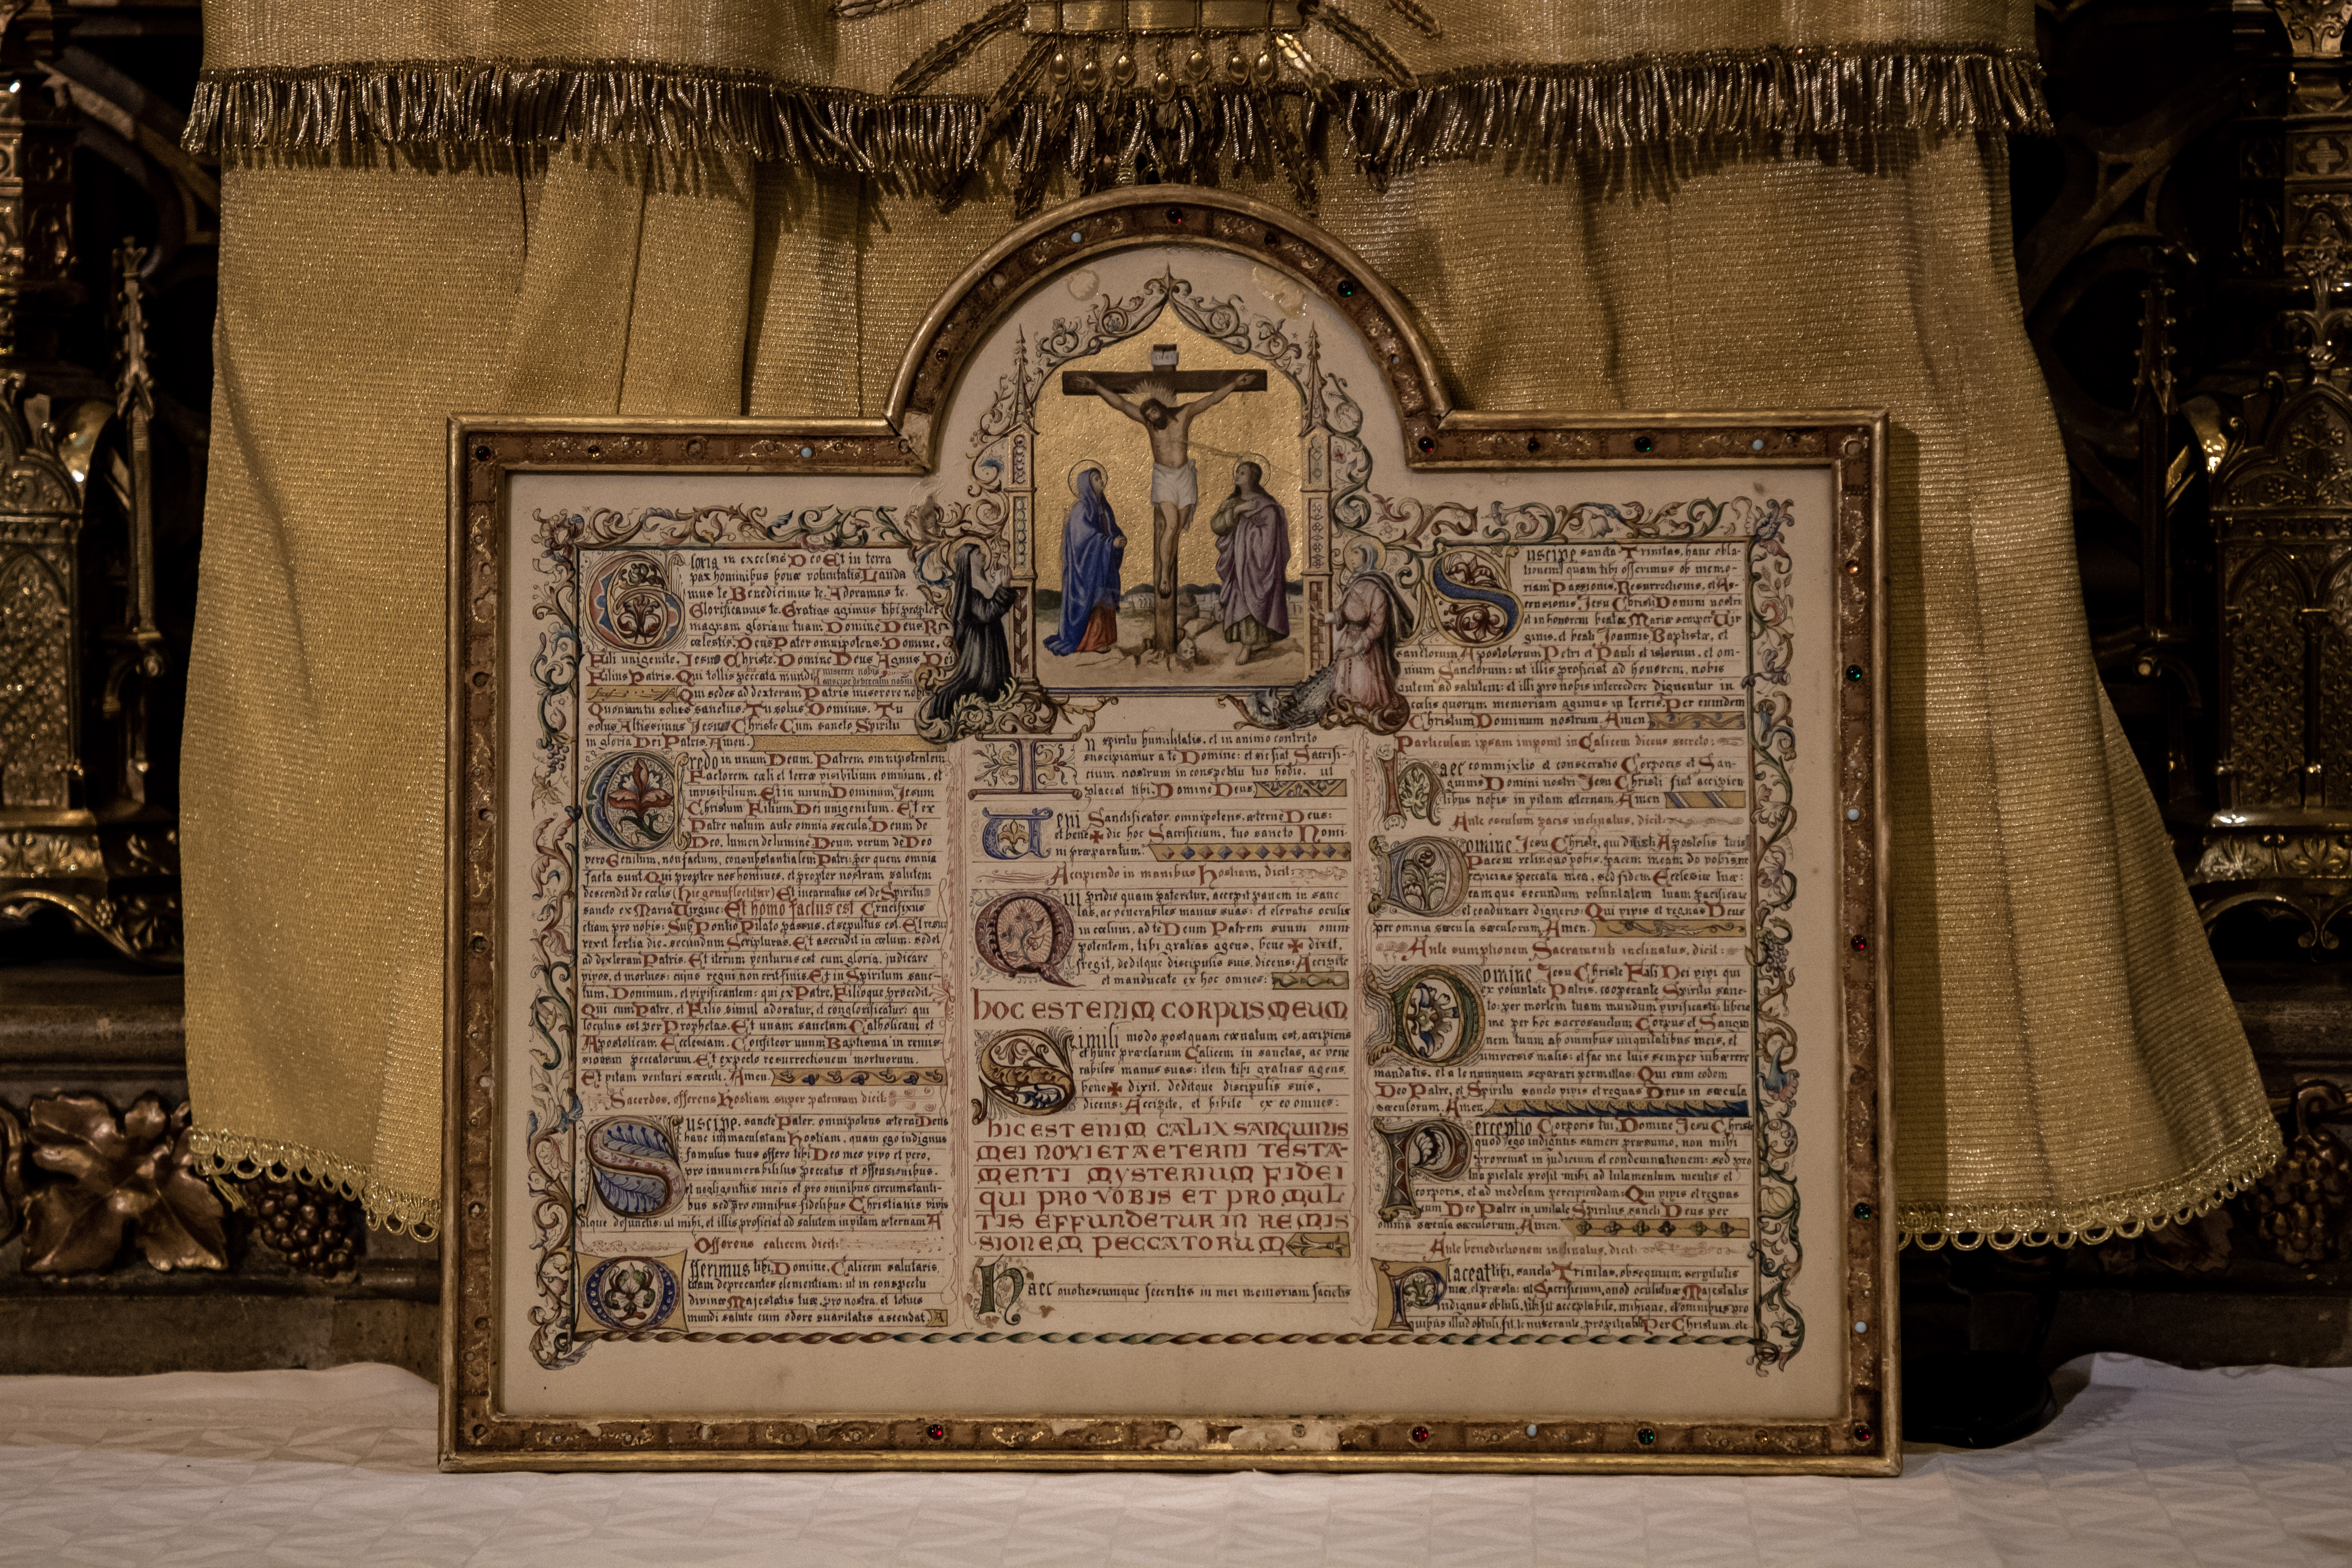 Gloria in excelsis Deo Et in terra
pax hominibus bonæ voluntatis Lauda
mus te Benedicimus te. Adoramus te.
Glorificamus te. Gratias agimus tibi propter
magnam gloriam tuam Domine Deus Rex
cœlestis. Deus Pater omnipotens. Domine,
Fili unigenite, Jesu Christe. Domine Deus Agnus Dei
Filius Patris. Qui tollis peccata mundi miserere nobis
suscipe deprecationem nostram
Qui sedes ad dexteram Patris miserere nobis
Quoniam tu solus sanctus. Tu solus Dominus. Tu
solus Altissimus Jesu Christe Cum sancto Spiritu
in gloria Dei Patris. Amen.
Credo in unum Deum. Patrem omnipotentem
Factorem cœli et terræ visibilium omnium, et
invisibilium. Et in unum Dominum Jesum
Christum Filium Dei unigenitum. Et ex
Patre natum ante omnia sæcula. Deum de
Deo, lumen de lumine Deum verum de Deo
vero Genitum, non factum, consubstantialem Patri: per quem omnia
facta sunt Qui propter nos homines, et propter nostram salutem
descendit de cœlis (hic genuflectitur) Et incarnatus est de Spiritu
sancto ex Maria Virgine: Et homo factus est Crucifixus
etiam pro nobis: Sub Pontio Pilato passus, et sepultus est. Et resur
rexit tertia die, secundum Scripturas. Et ascendit in cœlum: sedet
ad dexteram Patris. Et iterum venturus est cum gloria, judicare
vivos, et mortuos: cujus regni non erit finis Et in Spiritum sanc-
tum, Dominum, et vivificantem: qui ex Patre, Filioque procedit.
Qui cum Patre, et Filio simul adoratur, et conglorificatur: qui
locutus est per Prophetas. Et unam sanctam Catholicam et
Apostolicam Ecclesiam. Confiteor unum Baptisma in remis-
sionem peccatorum. Et expecto resurrectionem mortuorum.
Et vitam venturi sæculi. Amen.
Sacerdos, offerens Hostiam super patenam dicit:
Suscipe, sancte Pater, omnipotens æterne Deus
hanc immaculatam Hostiam, quam ego indignus
famulus tuus offero tibi Deo meo vivo et vero,
pro innumerabilibus peccatis et offensionibus,
et negligentiis meis et pro omnibus circumstanti-
bus sed pro omnibus fidelibus Christianis vivis
atque defunctis: ut mihi, et illis proficiat ad salutem in vitam æternam A
Offerens calicem dicit:
Offerimus tibi Domine, Calicem salutaris
tuam deprecantes clementiam: ut in conspectu
divinæ Majestatis tuæ, pro nostra, et totius
mundi salute cum odore suavitatis ascendat. A
In spiritu humilitatis, et in animo contrito
suscipiamur a te Domine: et sic fiat Sacrifi-
cium nostrum in conspectu tuo hodie, ut
placeat tibi Domine Deus
Veni Sanctificator omnipotens, æterne Deus:
et bene✠dic hoc Sacrificium, tuo sancto Nomi-
ni præparatum.
Accipiendo in manibus Hostiam, dicit:
Qui pridie quam pateretur, accepit panem in sanc
tas, ac venerabiles manus suas: et elevatis oculis
in cœlum, ad te Deum Patrem suum omni
potentem, tibi gratias agens, bene ✠ dixit,
fregit, deditque discipulis suis, dicens: Accipite
et manducate ex hoc omnes:
HOC EST ENIM CORPUS MEUM
Simili modo postquam cœnatum est, accipiens
et hunc præclarum Calicem in sanctas, ac vene
rabiles manus suas: item tibi gratias agens
bene✠ dixit, deditque discipulis suis,
dicens: Accipite, et bibite ex eo omnes:
HIC EST ENIM CALIX SANGUINIS
MEI NOVI ET AETERNI TESTA-
MENTI MYSTERIUM FIDEI
QUI PRO VOBIS ET PRO MUL
TIS EFFUNDETUR IN REMIS
SIONEM PECCATORUM
Haec quotiescumque feceritis in mei memoriam facietis
Suscipe sancta Trinitas, hanc obla-
tionem quam tibi offerimus ob memo-
riam Passionis, Resurrectionis, et As-
censionis Jesu Christi Domini nostri
et in honorem beatæ Mariæ semper Vir
ginis, et beati Joannis Baptistæ, et
sanctorum Apostolorum Petri et Pauli et istorum, et om-
nium Sanctorum: ut illis proficiat ad honorem, nobis
autem ad salutem: et illi pro nobis intercedere dignentur in
cœlis quorum memoriam agimus in terris. Per eumdem
Christum Dominum nostrum. Amen.
Particulam ipsam imponit in Calicem dicens secreto:
Haec commixtio et consecratio Corporis et San-
guinis Domini nostri Jesu Christi fiat accipien
tibus nobis in vitam æternam. Amen
Ante osculum pacis inclinatus, dicit:
Domine Jesu Christe, qui dixisti Apostolis tuis
Pacem relinquo vobis, pacem meam do vobis: ne
respicias peccata mea, sed fidem Ecclesiæ tuæ:
eamque secundum voluntatem tuam pacificare
et coadunare digneris: Qui vivis et regnas Deus
per omnia sæcula sæculorum. Amen.
Ante sumptionem Sacramenti inclinatus, dicit:
Domine Jesu Christe Fili Dei vivi qui
ex voluntate Patris, cooperante Spiritu sanc-
to: per mortem tuam mundum vivificasti: libera
me per hoc sacrosanctum Corpus et Sangui
nem tuum ab omnibus iniquitatibus meis, et
universis malis: et fac me tuis semper inhærere
mandatis, et a te nunquam separari permittas: Qui cum eodem
Deo Patre, et Spiritu sancto vivis et regnas Deus in sæcula
sæculorum. Amen.
Perceptio Corporis tui, Domine Jesu Christe
quod ego indignus sumere præsumo, non mihi
proveniat in judicium et condemnationem: sed pro
tua pietate prosit mihi ad tutamentum mentis et
corporis, et ad medelam percipiendam: Qui vivis et regnas
cum Deo Patre in unitate Spiritus sancti Deus per
omnia sæcula sæculorum. Amen.
Ante benedictionem inclinatus, dicit:
Placeat tibi, sancta Trinitas, obsequium servitutis
meæ, et præsta: ut Sacrificium, quod oculis tuæ Majestatis
indignus obtuli, tibi sit acceptabile, mihique, et omnibus pro
quibus illud obtuli, sit, te miserante, propitiabile Per Christum. etc